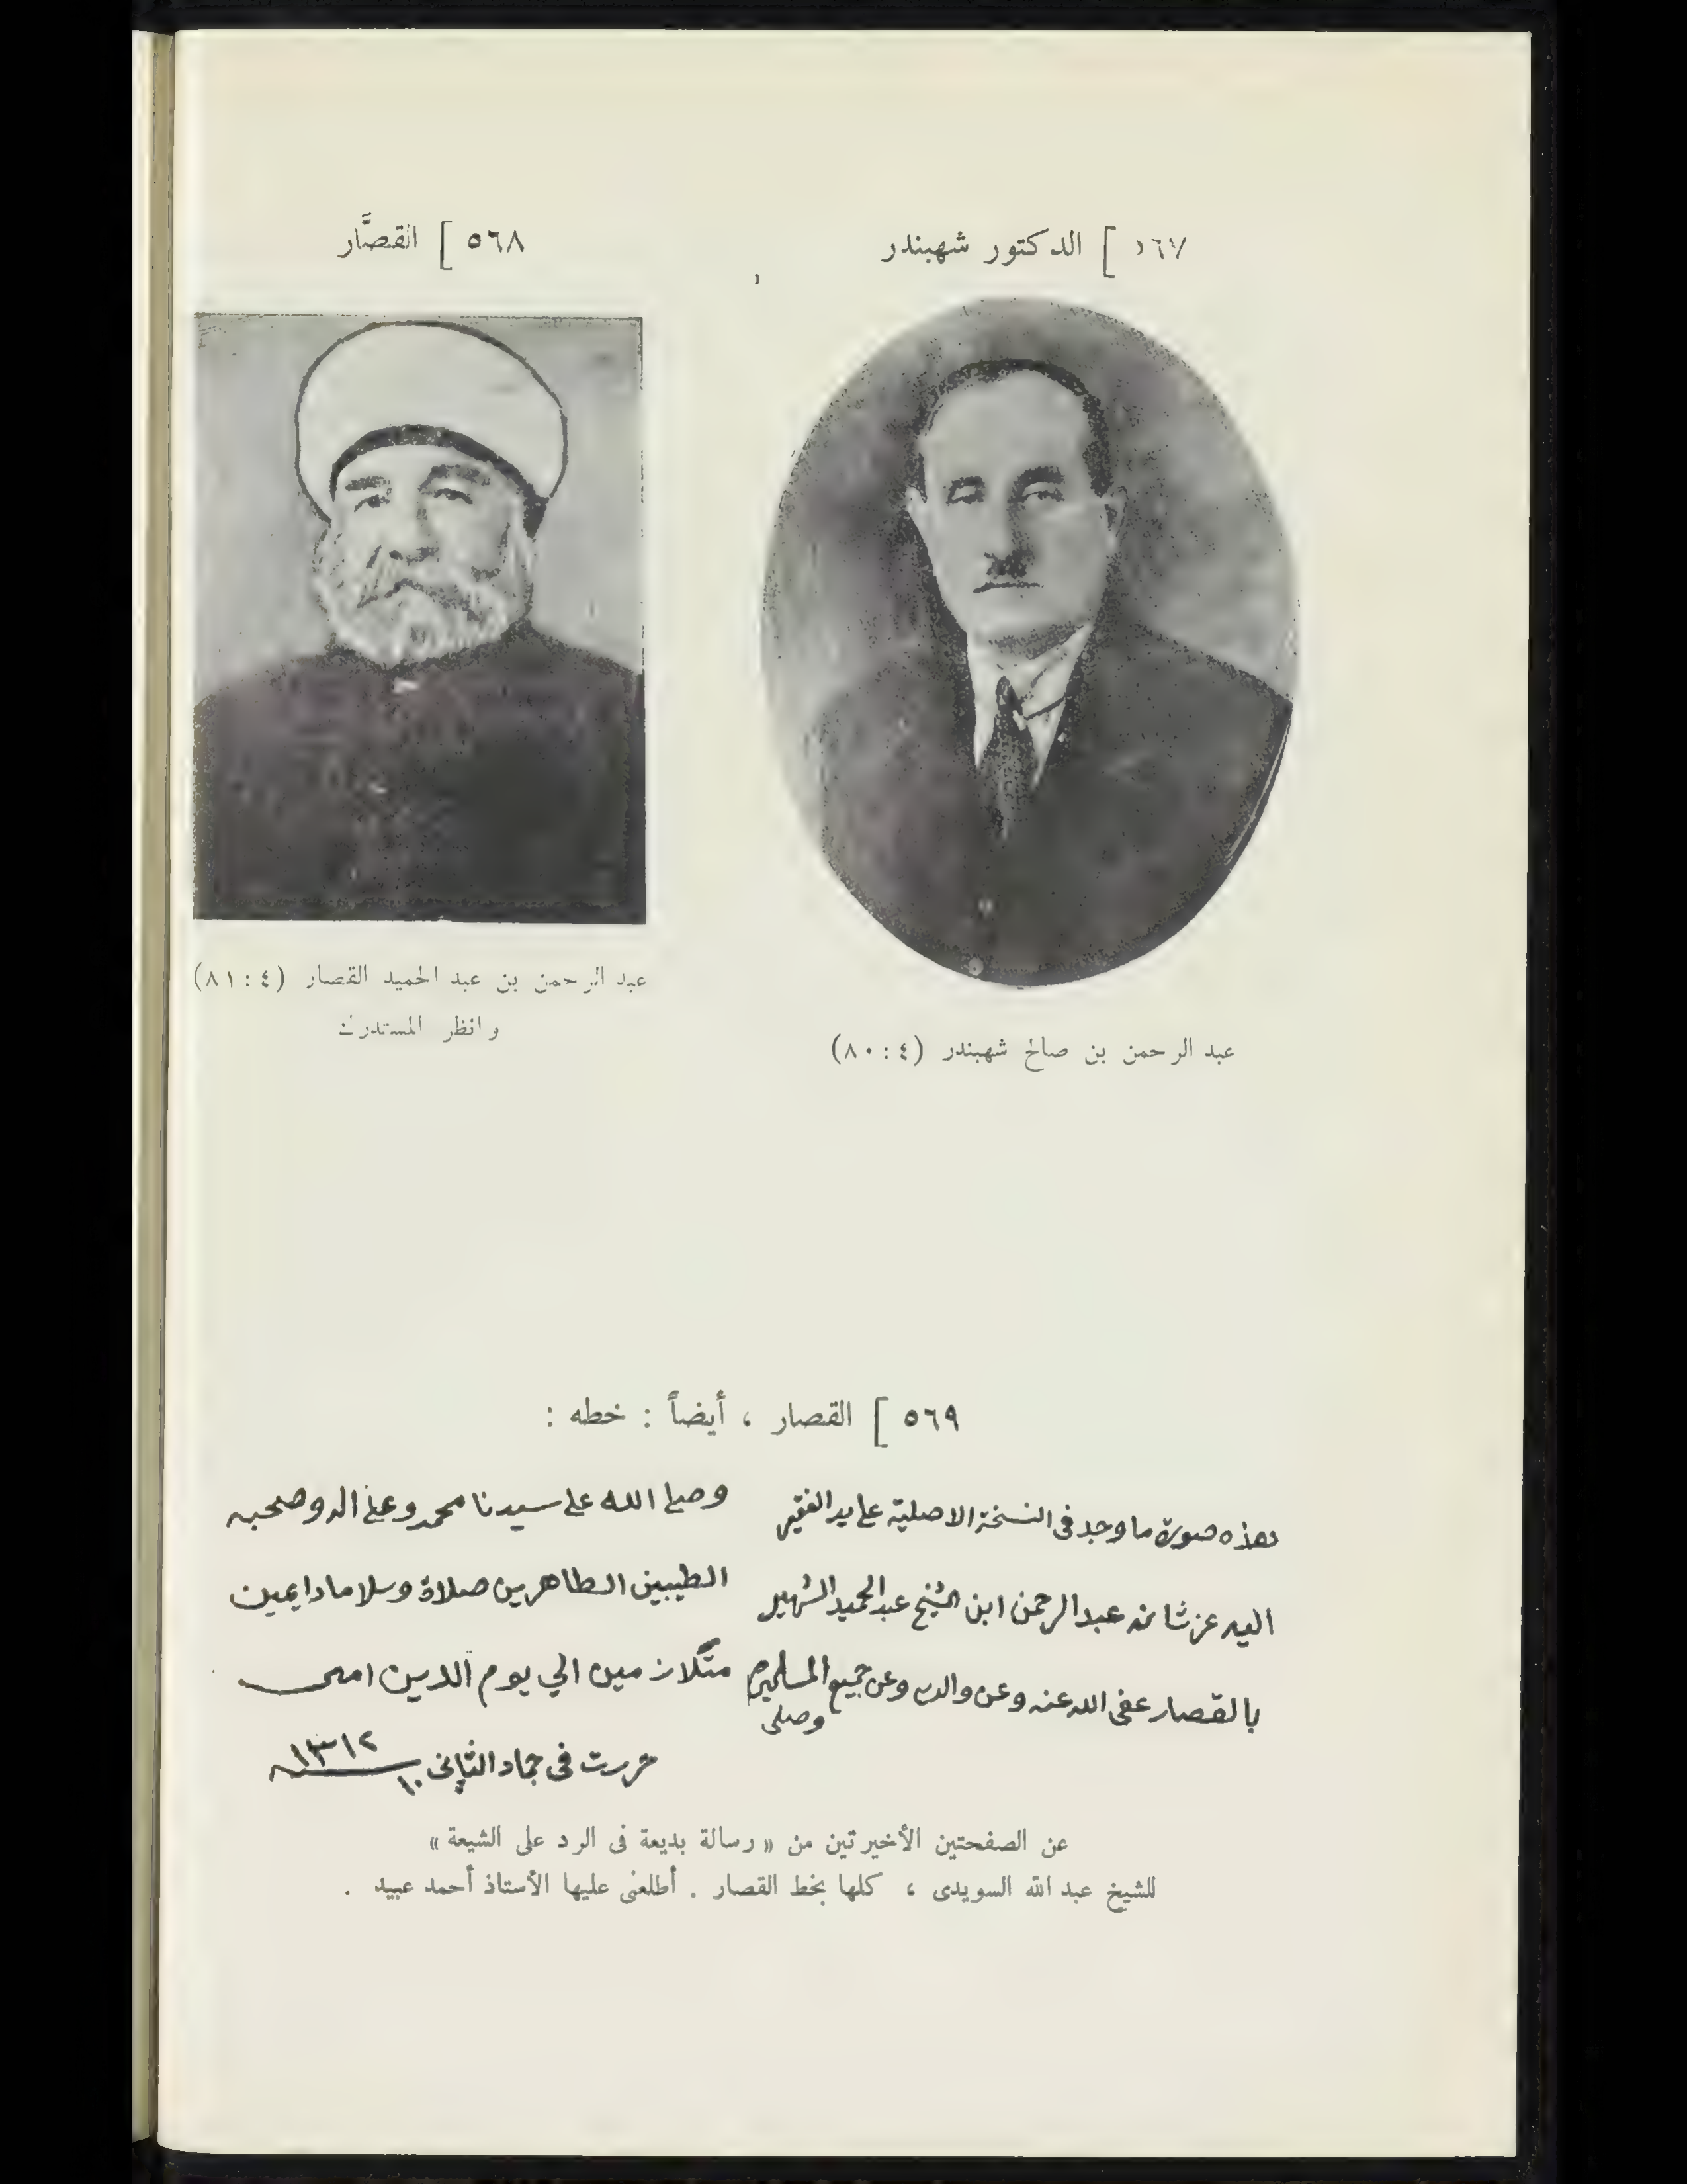 ٥٦٧ ] الدكتور شهبندر
عبد الرحمن بن صالح شهبندر (٤ : ٨٠)
٥٦٨ ] القصَّار
عبد الرحمن بن عبد الحميد القصار (٤ : ٨١)
وانظر المستدرك
٥٦٩ ] القصار ، أيضاً : خطه :
هذه صورة ما وجد فى النسخة الاصلية على يد الفقير
اليه عز شانه عبد الرحمن ابن الشيخ عبد الحميد الشهير
بالقصار عفى الله عنه وعن والديه وعن جميع المسلمين
وصلى
وصلى الله على سيدنا محمد وعلى اله وصحبه
الطيبين الطاهرين صلاة وسلاما دايمين
متلازمين الي يوم الدين امين
حررت فى جماد الثانى ١٠ ١٣١٢
عن الصفحتين الأخيرتين من « رسالة بديعة فى الرد على الشيعة »
للشيخ عبد الله السويدى ، كلها بخط القصار . أطلعنى عليها الأستاذ أحمد عبيد .